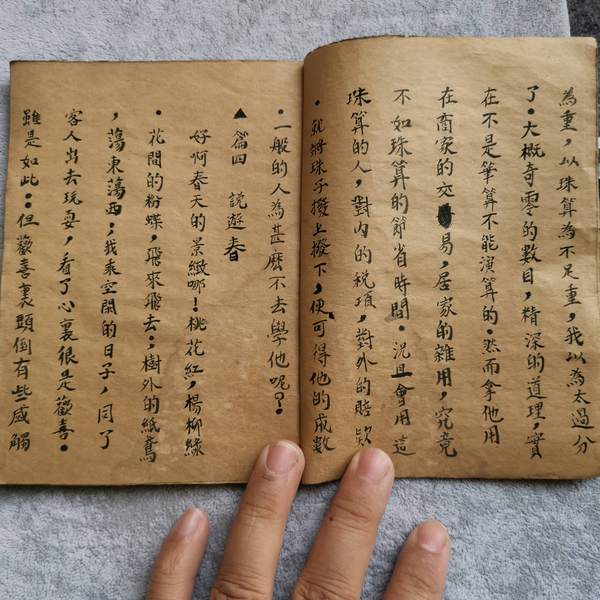 為重，以珠算為不足重，我以為太過分
了。大概奇零的數目，精深的道理，實
在不是筆算不能演算的。然而拿他用
在商家的交易，居家的雜用，究竟
不如珠算的節省時間。況且會用這
珠算的人，對內的稅項，對外的賬款
。就將珠子撥上撥下，便可得他的成數
。一般的人為甚麽不去學他呢？
▲篇四 說遊春
好啊春天的景緻哪！桃花紅，楊柳綠
。花間的粉蝶，飛來飛去；樹外的紙鳶
，蕩東蕩西；我乘空閑的日子，同了
客人出去玩耍，看了心裏很是歡喜。
雖是如此：但歡喜裏頭倒有些感觸